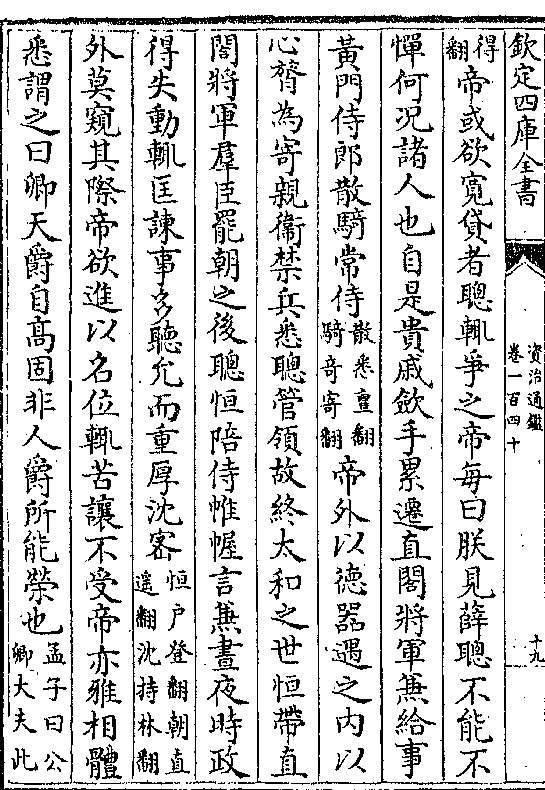 欽定四庫全書
資治通鑑
卷一百四十
十九
得
翻帝或欲寛貸者聰輒爭之帝每曰朕見薛聰不能不
憚何况諸人也自是貴戚歛手累遷直閤將軍兼給事
黃門侍郎散騎常侍散悉亶翻
騎竒寄翻帝外以德器遇之内以
心膂為寄親衞禁兵悉聰管領故終太和之世恒帶直
閤將軍羣臣罷朝之後聰恒陪侍帷幄言兼晝夜時政
得失動輒匡諫事多聽允而重厚沈宻恒户登翻朝直
遥翻沈持林翻
外莫窺其際帝欲進以名位輒苦讓不受帝亦雅相體
悉謂之曰卿天爵自髙固非人爵所能榮也孟子曰公
卿大夫此